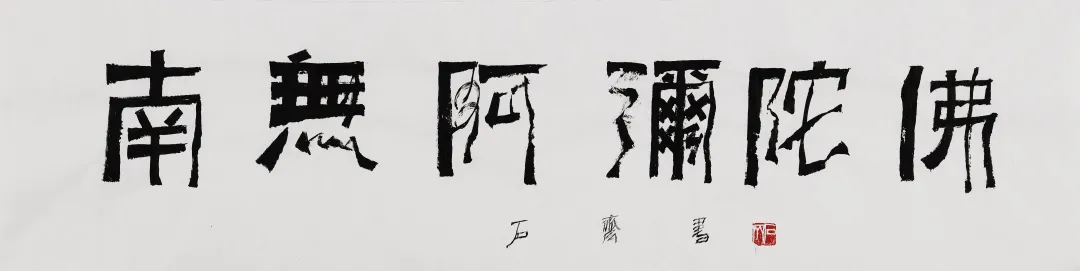 南無阿彌陀佛
石齋書